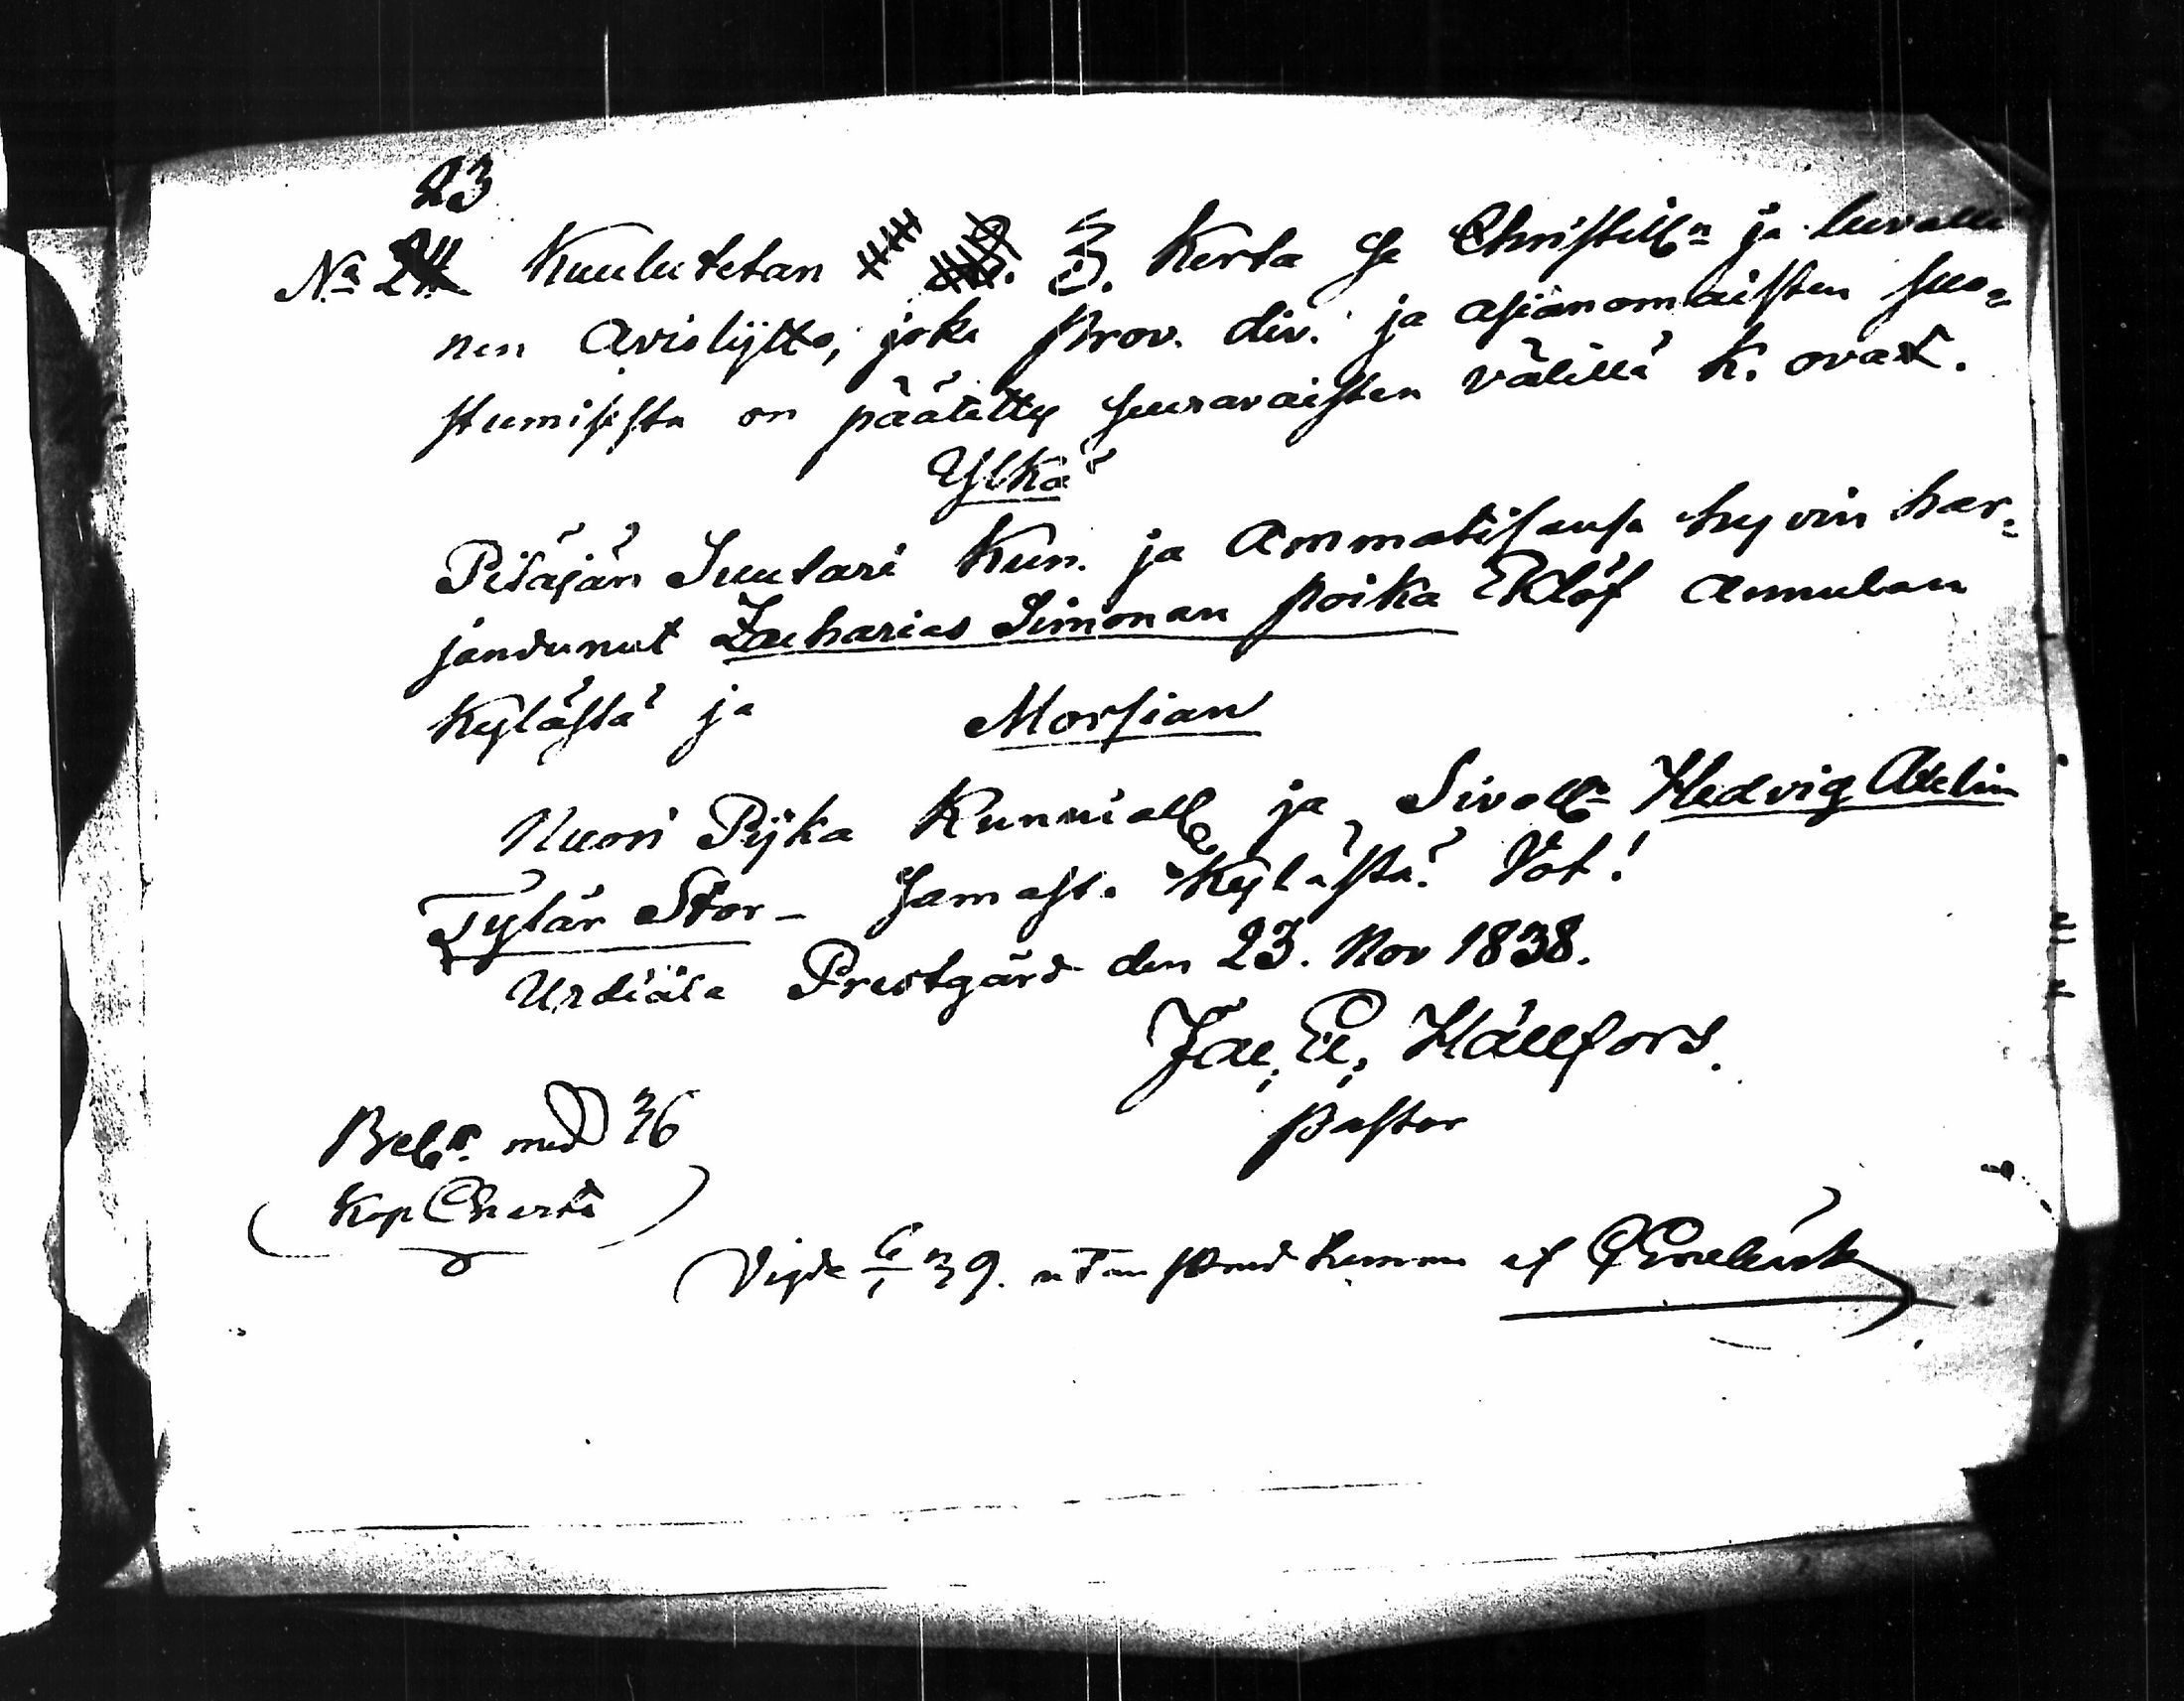 23
No 24 Kuulutetan 3. Kerta se Christilln ja luvalli
nen Aviolijtto, joka prov. div. ja asianomaisten suo=
stumisesta on päätetty seuravaisten välillä K. ovat.
Ylkä
Pitäjän Suutari Kun. ja Ammatisansa hyvin har=
jandunut Zacharias Simonan poika Eklöf Annulan
Kylästä ja Morsian
Nuori Pijka Kunniall ja Sivoll Hedvig Adelin
Tytär Stor- Samasta Kylästä. Vot!
Urdiala Prestgård den 23. Nov 1838.
Jac, Ed, Hällfors.
Pastor
Belr. med 36
Kop Charta
Vigde 6/1 39. utan af